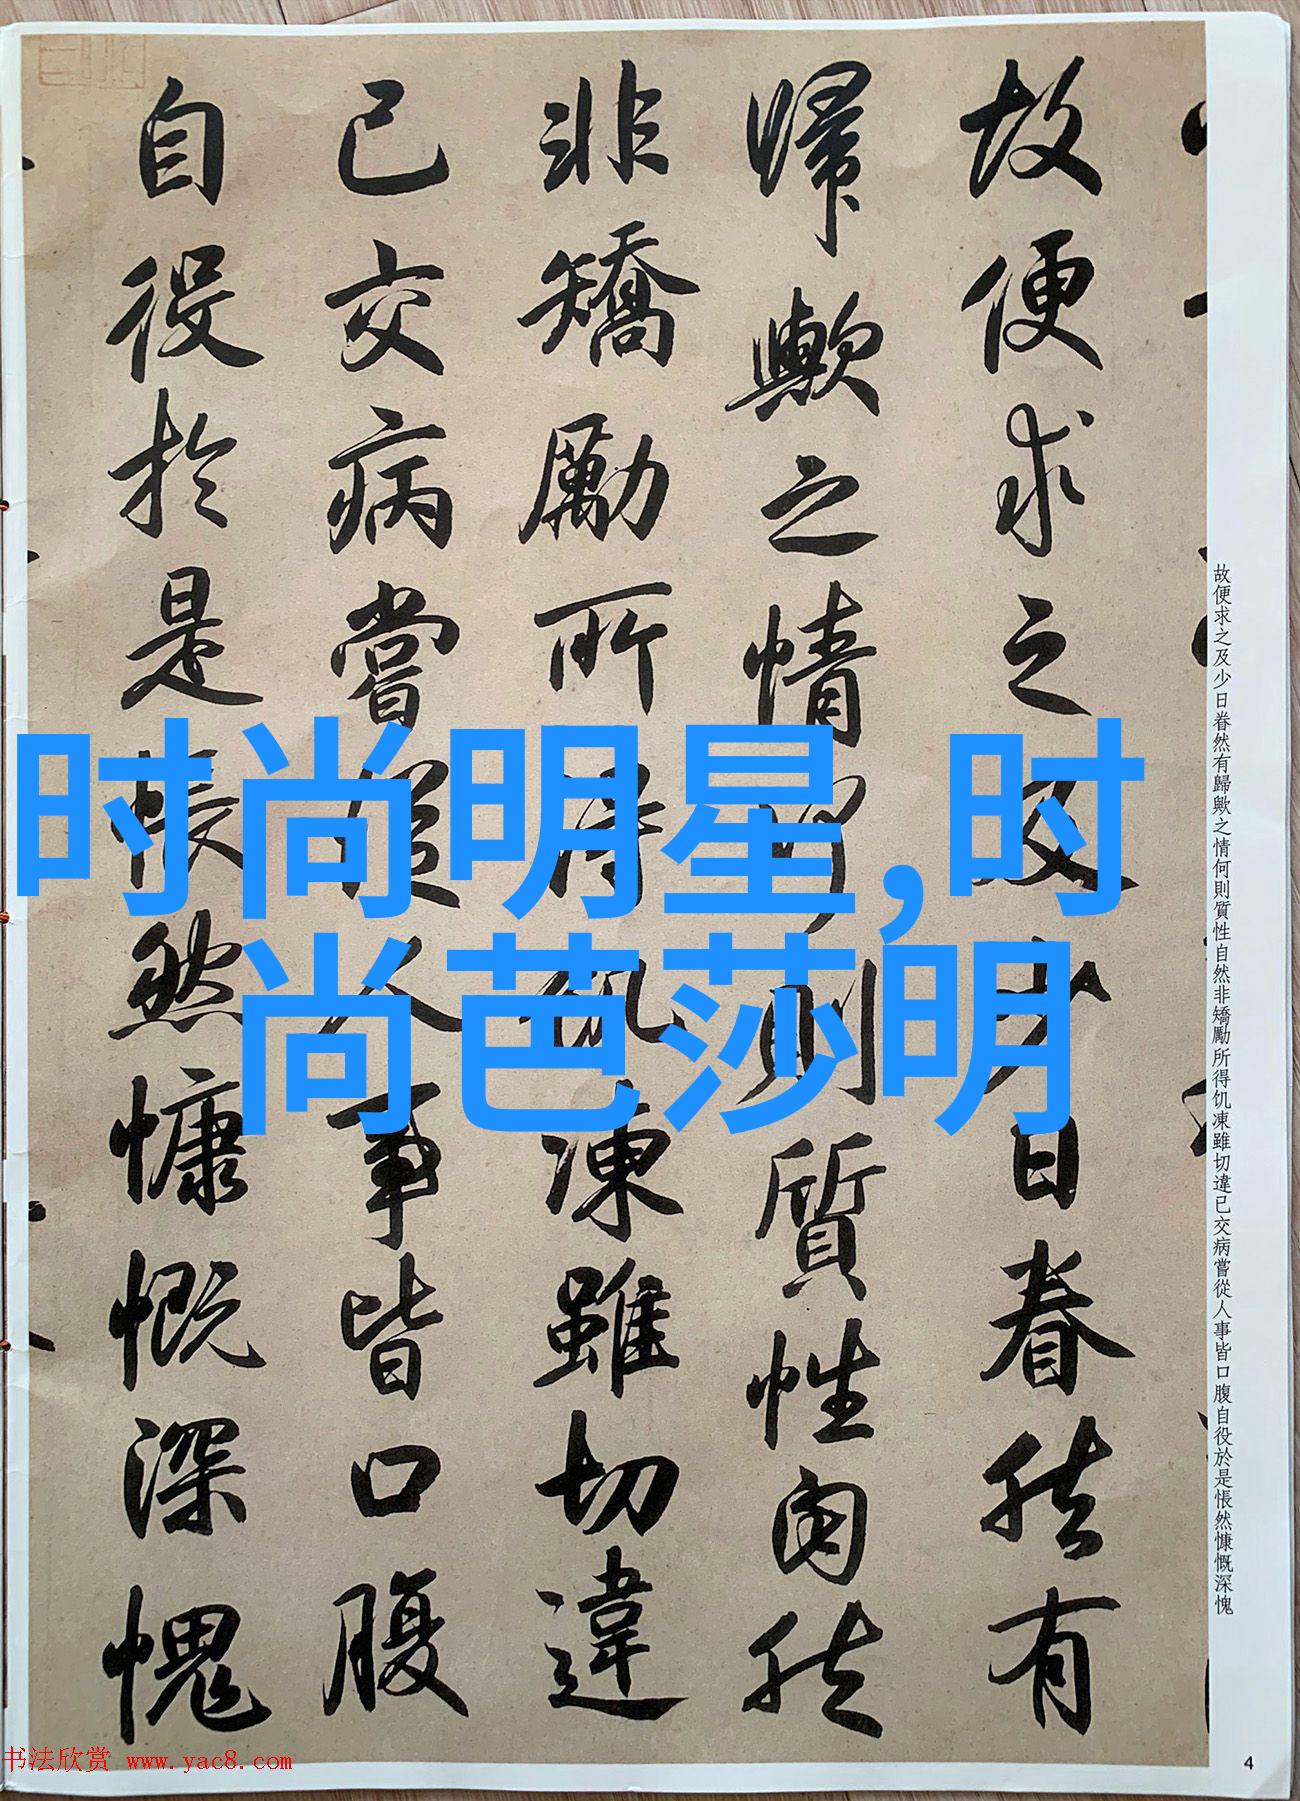 故便求之及少日眷然有
歸歟之情何則質性自然
非矯勵所得飢凍雖切違
己交病嘗從人事皆口腹
自役於是悵然慷慨深愧
时尚明星,时
尚芭莎明
故便求之及少日眷然有歸歟之情何則質性自然非矯勵所得饥凍雖切違已交病嘗從人事皆口腹自役於是悵然慷慨深愧
书法欣赏 www.yac8.com
4